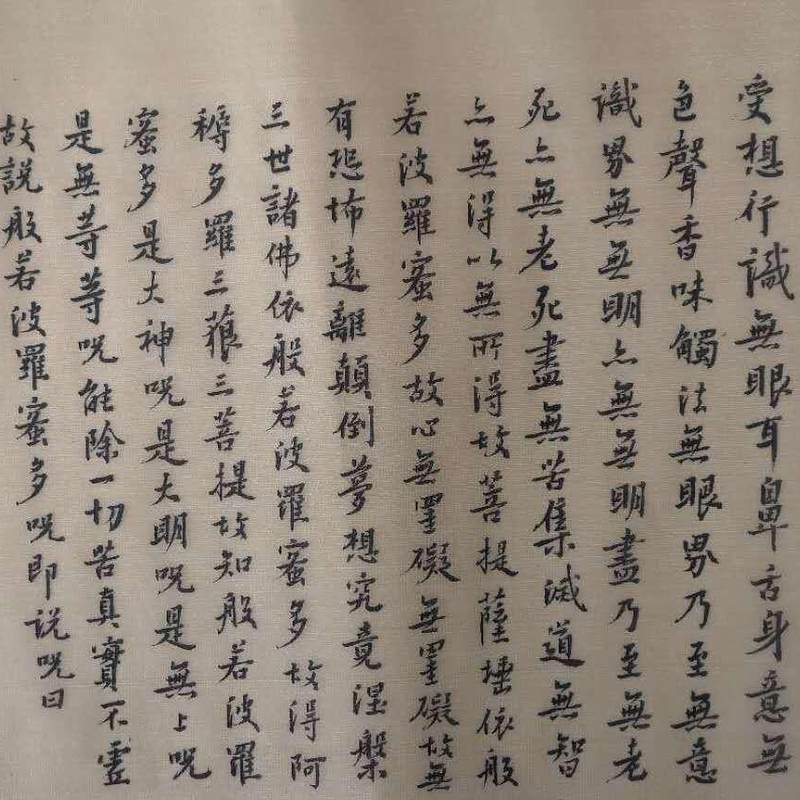 受想行識無眼耳鼻舌身意無
色聲香味觸法無眼界乃至無意
識界無無明亦無無明盡乃至無老
死亦無老死盡無苦集滅道無智
亦無得以無所得故菩提薩埵依般
若波羅蜜多故心無罣礙無罣礙故無
有恐怖遠離顛倒夢想究竟涅槃
三世諸佛依般若波羅蜜多故得阿
耨多羅三藐三菩提故知般若波羅
蜜多是大神咒是大明咒是無上咒
是無等等咒能除一切苦真實不虛
故說般若波羅蜜多咒即說咒曰